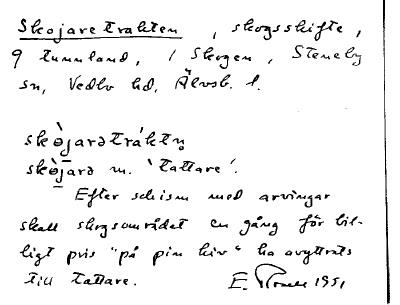 Skojaretrakten, skogsskifte,
9 tunnland, i Skogen, Steneby
sn, Vedbo hd, Älvsb. l.
skòjarətráktn̥
skòjarə m. 'tattare'.
Efter schism med arvingar
skall skogsområdet en gång för bil-
ligt pris "på pin kiv" ha avyttrats
till tattare. E. 1951